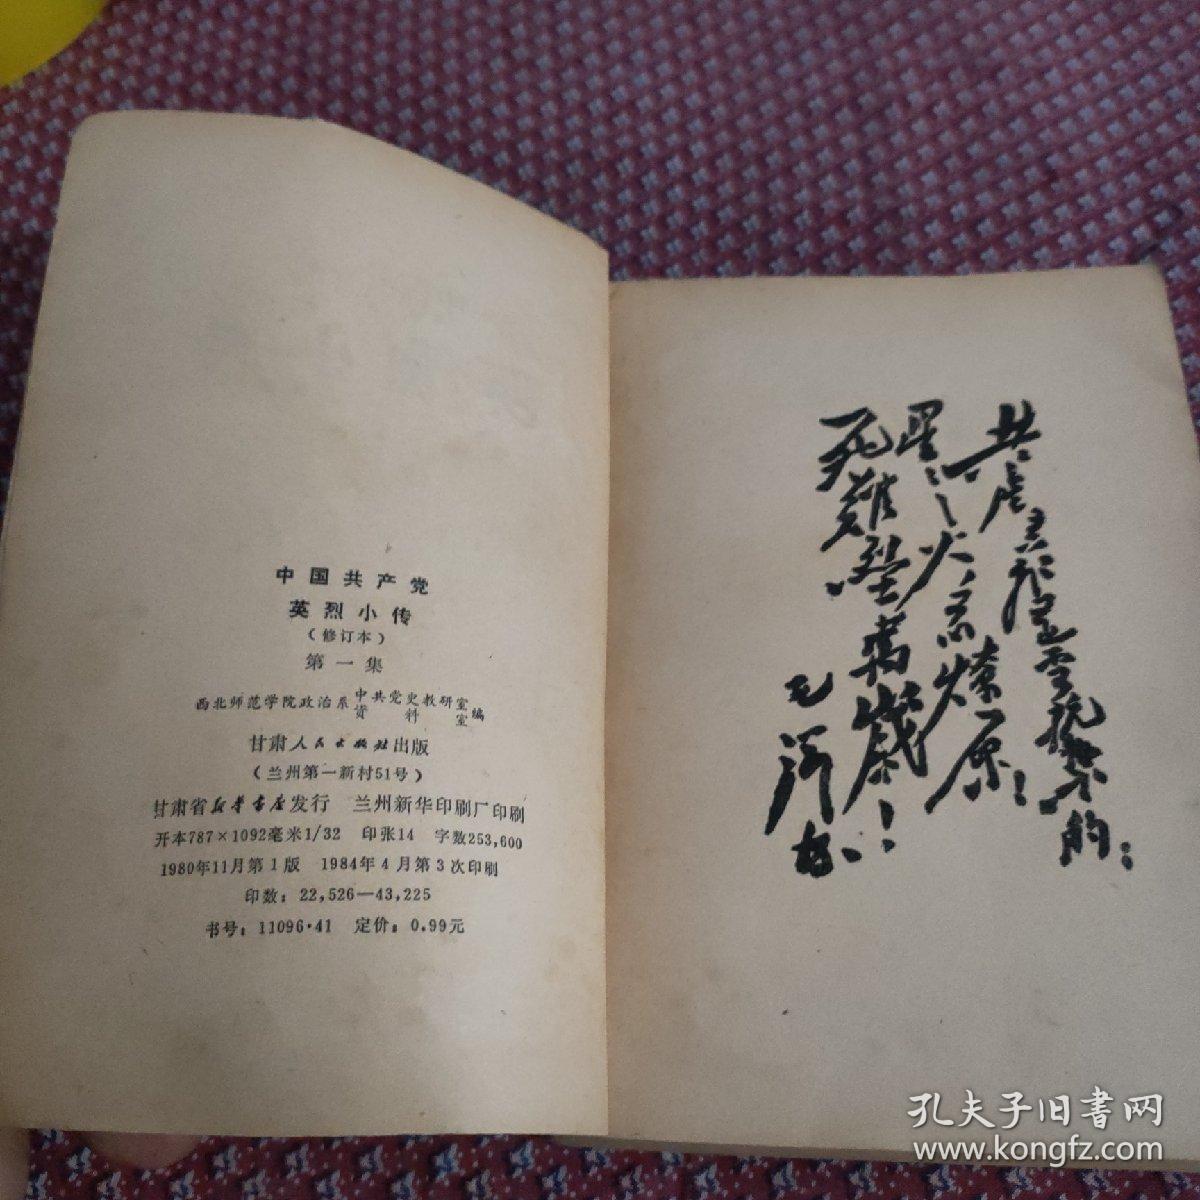 中国共产党
英烈小传
(修订本)
第一集
西北师范学院政治系中共党史教研室资料室编
甘肃人民出版社出版
(兰州第一新村51号)
甘肃省新华书店发行 兰州新华印刷厂印刷
开本787×1092毫米1/32 印张14 字数253,600
1980年11月第1版 1984年4月第3次印刷
印数:22,526—43,225
书号:11096·41 定价:0.99元
共產主義是不可抗禦的!
星星之火可以燎原!
死難烈士萬歲!
毛泽东
孔夫子旧书网
www.kongfz.com